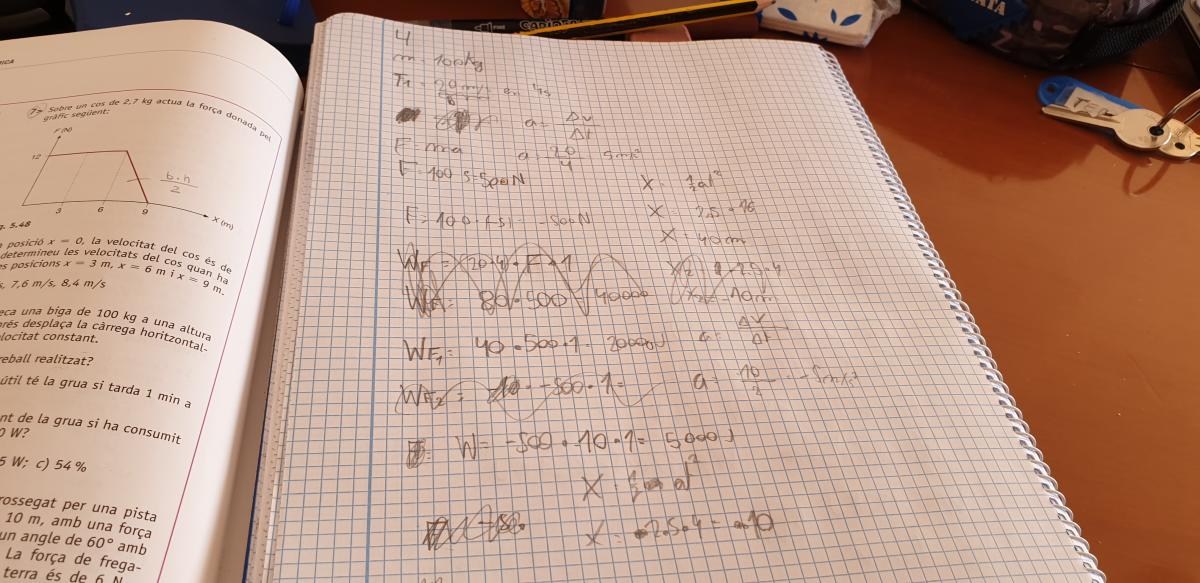 RICA
Sobre un cos de 2,7 kg actua la força donada pel
gràfic següent:
F (N)
12
b·h
2
3 6 9 X (m)
g. 5.48
posició x = 0, la velocitat del cos és de
determineu les velocitats del cos quan ha
es posicions x = 3 m, x = 6 m i x = 9 m.
s, 7,6 m/s, 8,4 m/s
eca una biga de 100 kg a una altura
prés desplaça la càrrega horitzontal-
elocitat constant.
reball realitzat?
útil té la grua si tarda 1 min a
nt de la grua si ha consumit
0 W?
5 W; c) 54 %
rossegat per una pista
10 m, amb una força
un angle de 60° amb
La força de frega-
terra és de 6 N
CARIOCA
4
m = 100kg
T1 = 20 m/s en 4s
a = Δv
Δt
F = ma a = 20 5m/s²
4
F = 100 · 5 = 500N X = ½at²
F = 100 · (-5) = -500N X = 2,5 · 16
X = 40m
WF1 = 40 · 500 · 1 = 20000J a = Δv
Δt
· -500 · 1 = a = 10 = -5m/s²
2
W = -500 · 10 · 1 = 5000 J
X = at²
X = 2,5 · 4 = 10